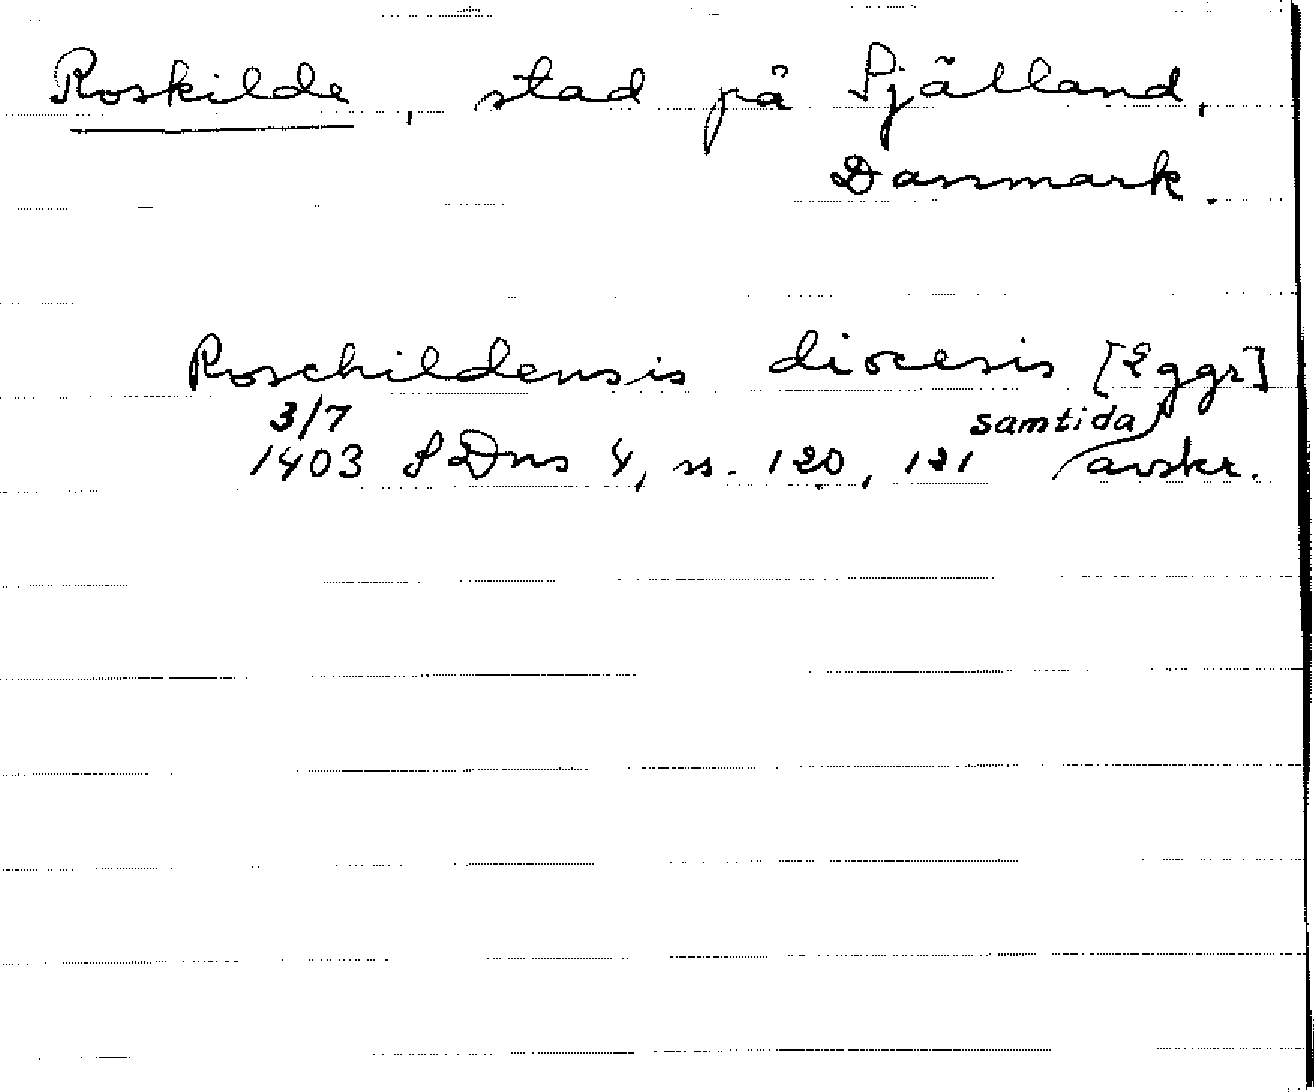 Roskilde, stad på Själland,
Danmark.
Roschildensis diocesis [Eggr]
3/7 samtida
1403 SDns 4, ss. 120, 121 avskr.